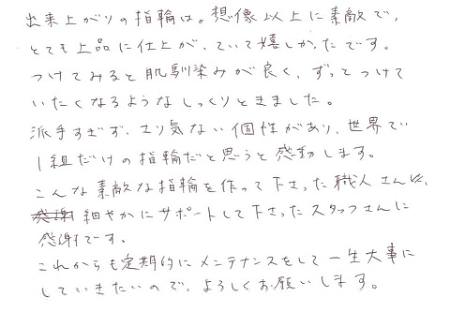 出来上がりの指輪は。想像以上に素敵で、
とても上品に仕上がっていて嬉しかったです。
つけてみると肌馴染みが良く、ずっとつけて
いたくなるようなしっくりときました。
派手すぎず、さり気ない個性があり、世界で
1組だけの指輪だと思うと感動します。
こんな素敵な指輪を作って下さった職人さんや、
感謝 細やかにサポートして下さったスタッフさんに
感謝です。
これからも定期的にメンテナンスをして一生大事に
していきたいので、よろしくお願いします。